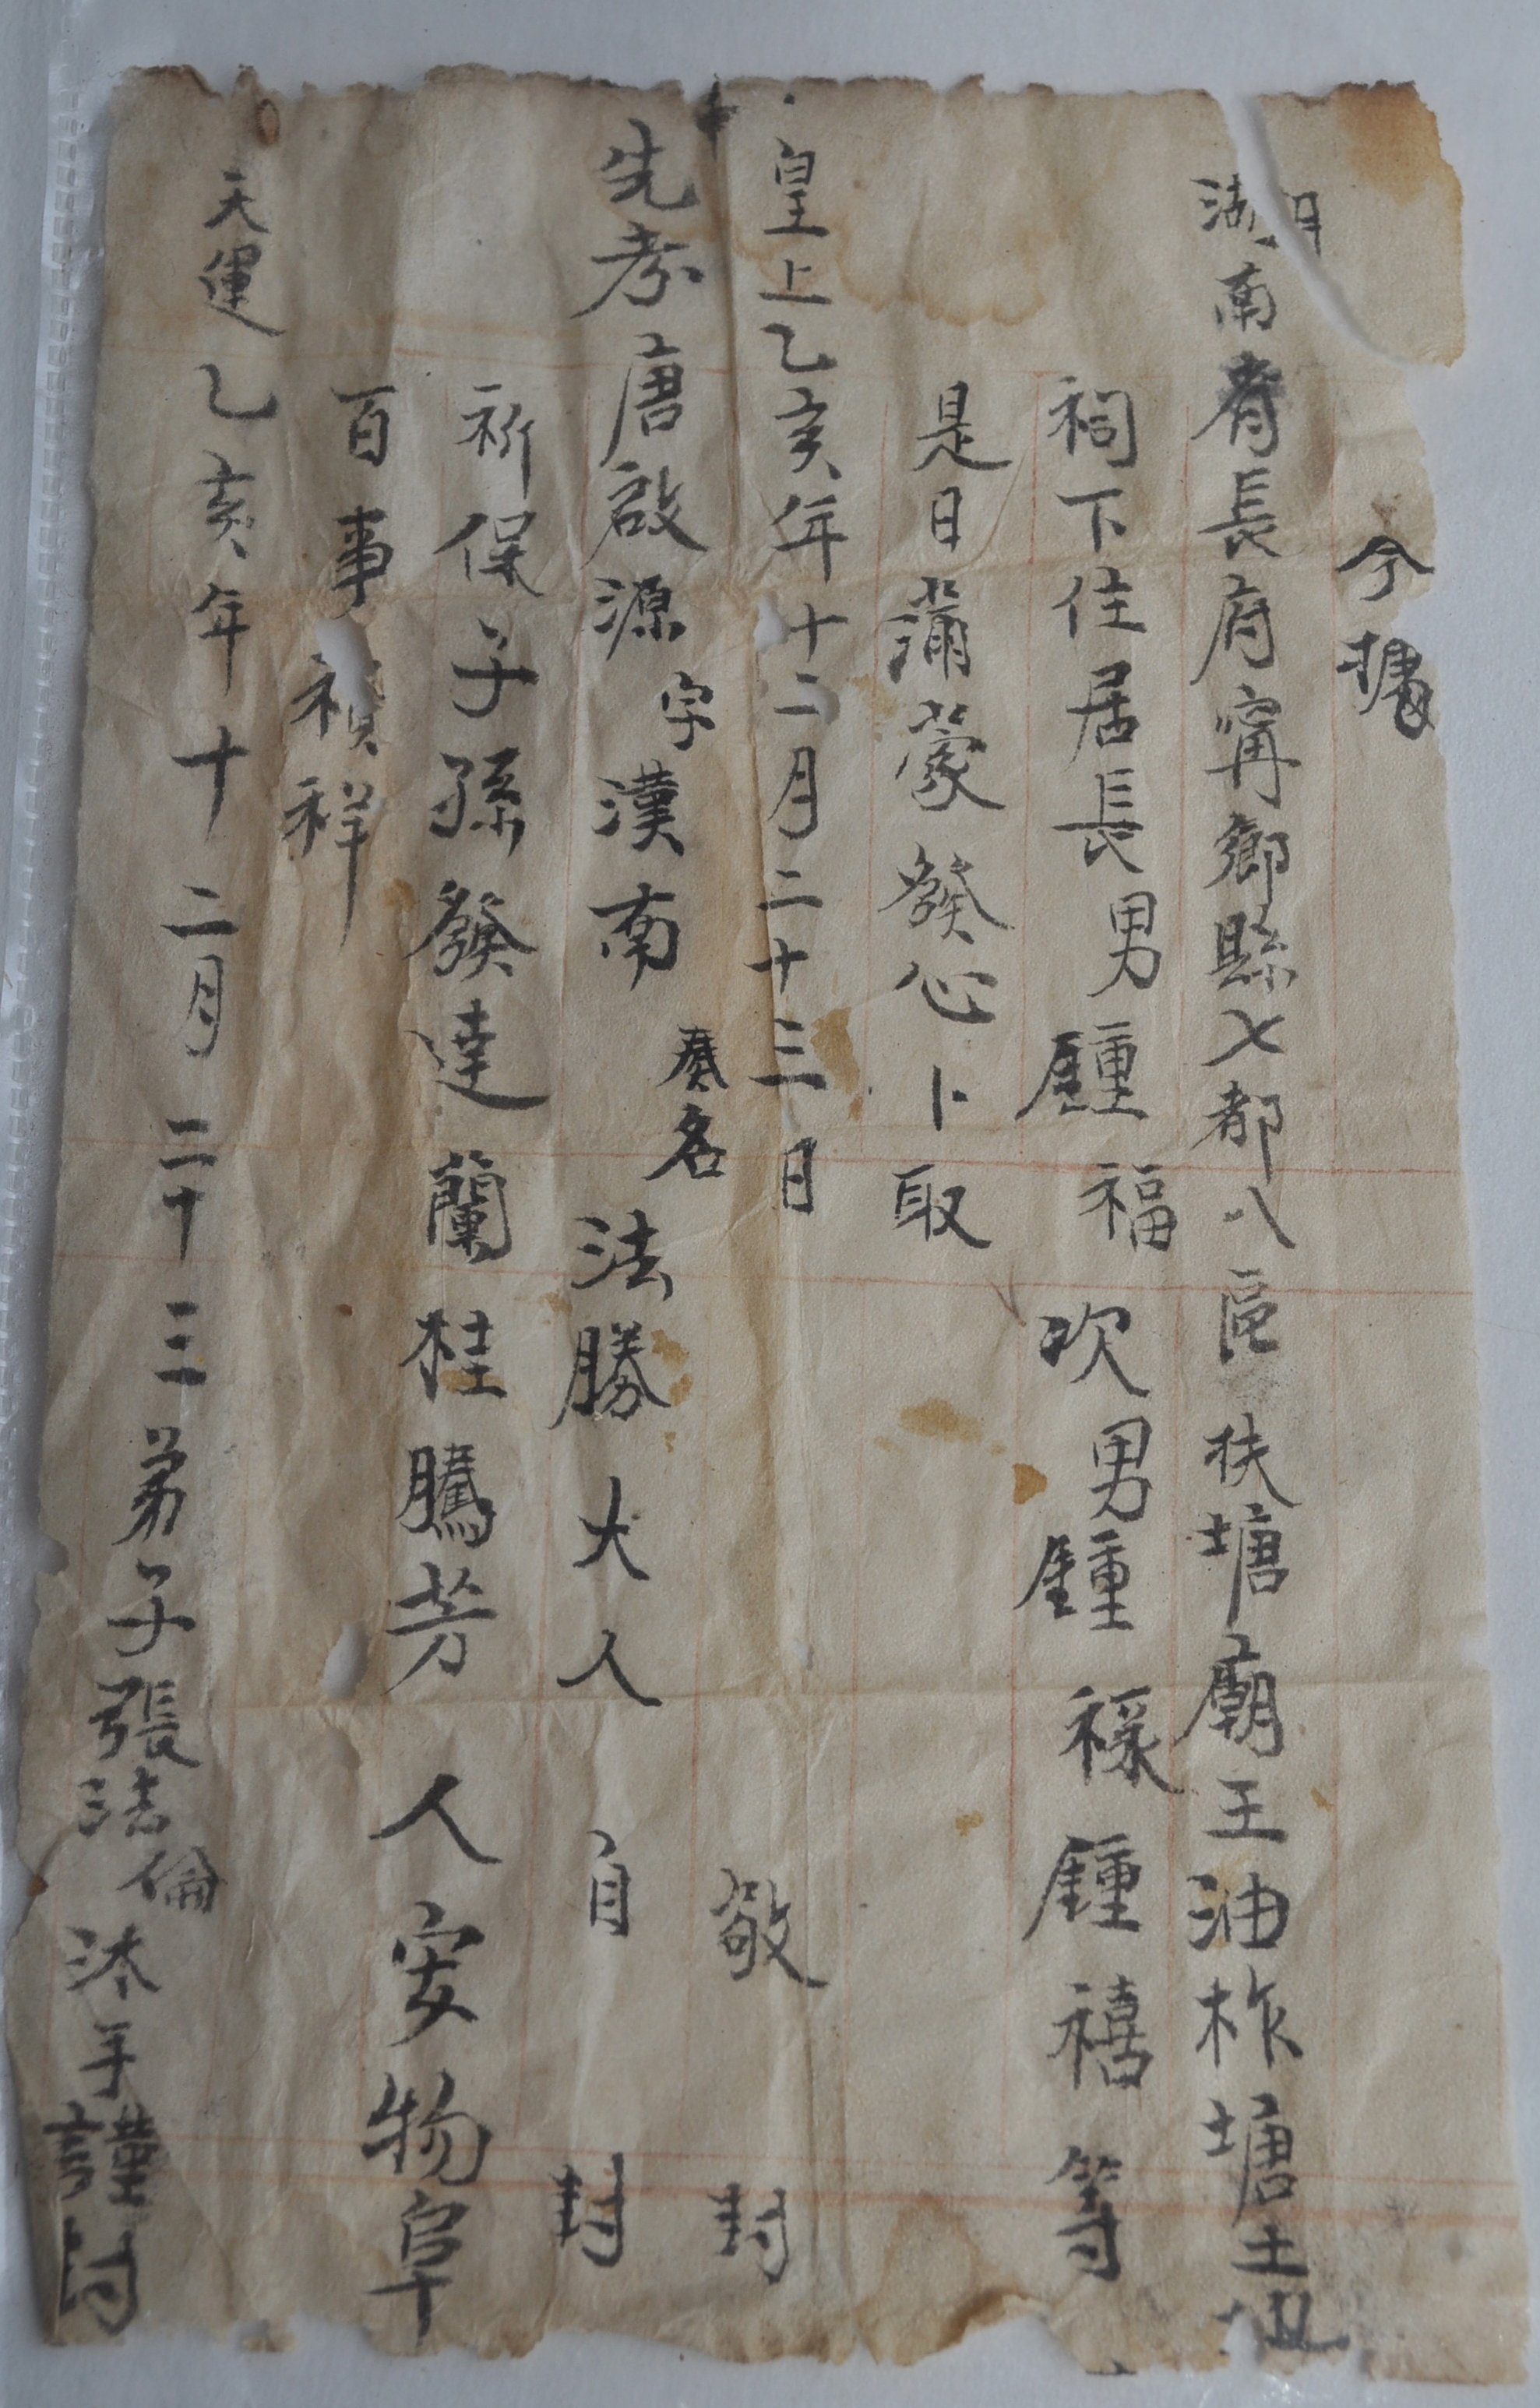 今據
湖南省長府甯鄉縣七都八區扶塘廟王油柞塘土地
祠下住居長男鍾福次男鍾祿鍾禧等
是日蒲蒙發心卜取
皇上乙亥年十二月二十三日敬封
先考唐啟源字漢南奏名法勝大人自封
祈保子孫發達蘭桂騰芳人安物阜
百事禎祥
天運乙亥年十二月二十三弟子張法倫沐手謹封